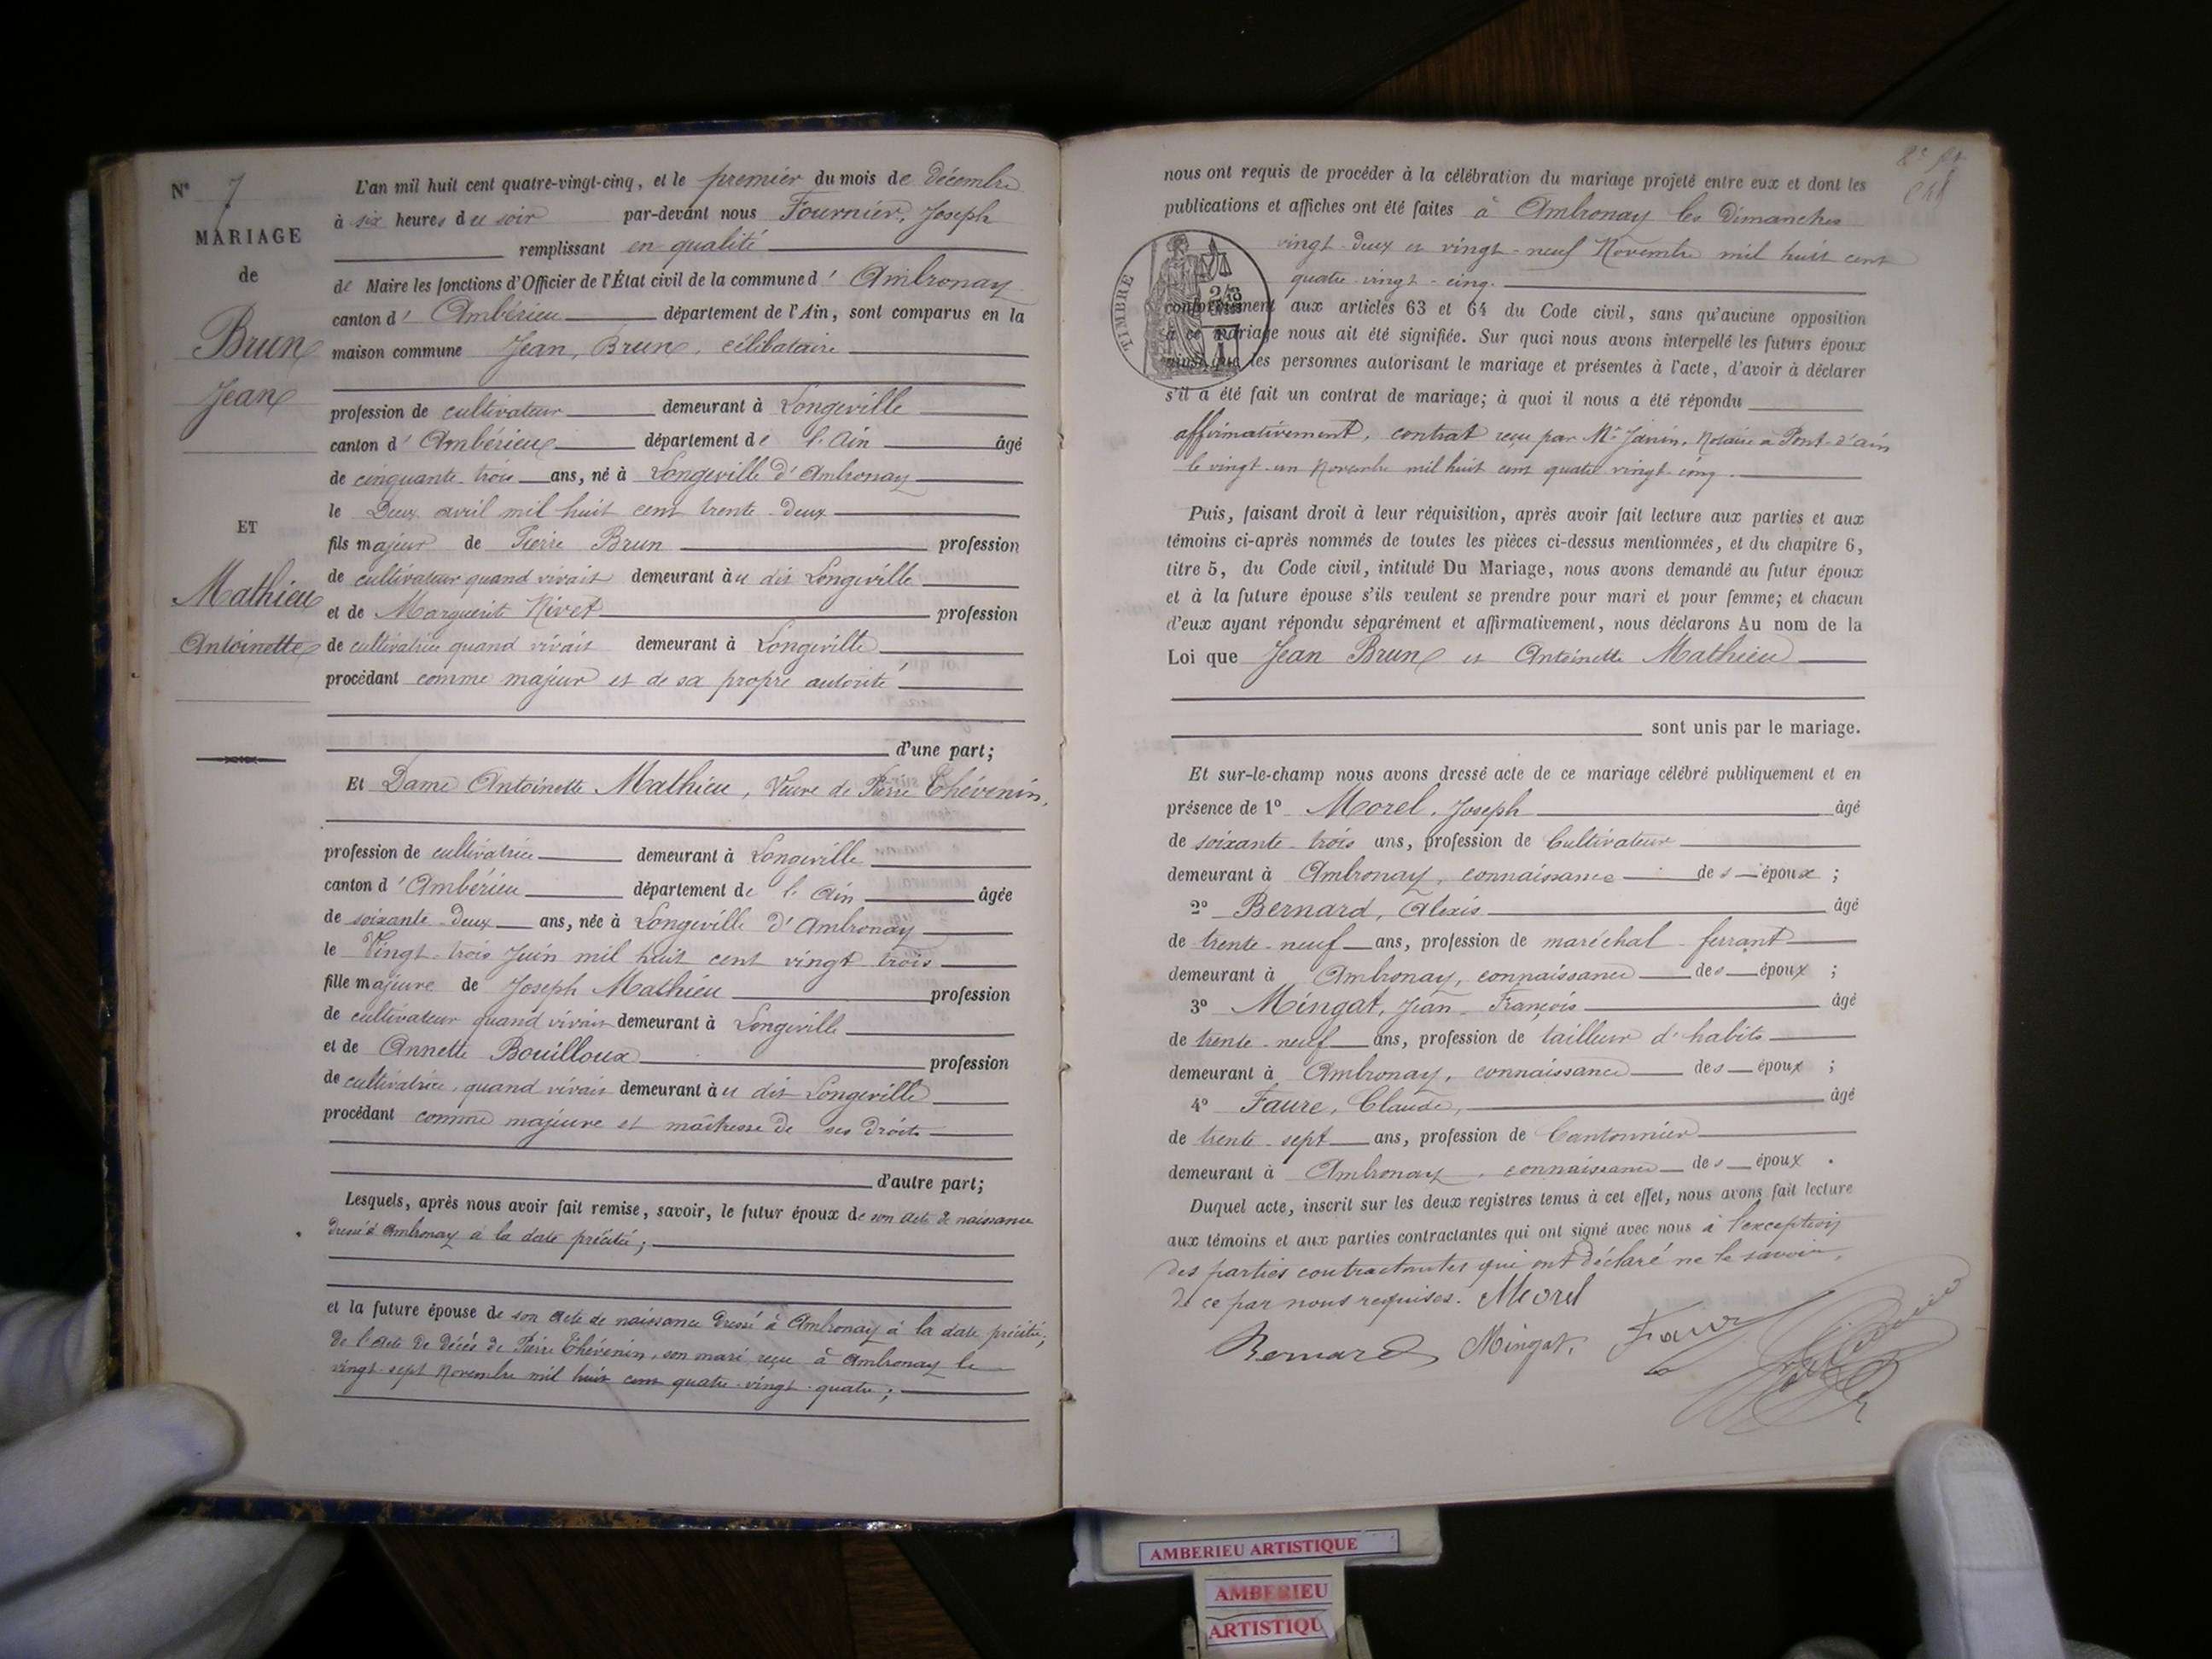 N° 7
MARIAGE
de
Brun
Jean
ET
Mathieu
Antoinette
L'an mil huit cent quatre-vingt-cinq, et le premier du mois de Décembre
à six heures du soir par-devant nous Fournier, Joseph
remplissant en qualité
de Maire les fonctions d'Officier de l'État civil de la commune d' Ambronay
canton d' Ambérieu département de l'Ain, sont comparus en la
maison commune Jean, Brun, célibataire
profession de cultivateur demeurant à Longeville
canton d' Ambérieu département de l'Ain âgé
de cinquante-trois ans, né à Longeville d'Ambronay
le Deux avril mil huit cent trente-deux
fils majeur de Pierre Brun profession
de cultivateur quand vivait demeurant au dit Longeville
et de Marguerite Nivet profession
de cultivatrice quand vivait demeurant à Longeville
procédant comme majeur et de sa propre autorité
d'une part;
Et Dame Antoinette Mathieu, Veuve de Pierre Thévenin,
profession de cultivatrice demeurant à Longeville
canton d' Ambérieu département de l'Ain âgée
de soixante-deux ans, née à Longeville d'Ambronay
le Vingt-trois Juin mil huit cent vingt trois
fille majeure de Joseph Mathieu profession
de cultivateur quand vivait demeurant à Longeville
et de Annette Bouilloux profession
de cultivatrice, quand vivait demeurant au dit Longeville
procédant comme majeure et maîtresse de ses droits
d'autre part;
Lesquels, après nous avoir fait remise, savoir, le futur époux de son acte de naissance
dressé à Ambronay à la date précitée;
et la future épouse de son acte de naissance dressé à Ambronay à la date précitée;
de l'acte de décès de Pierre Thévenin, son mari reçu à Ambronay le
vingt-sept Novembre mil huit cent quatre-vingt-quatre;
nous ont requis de procéder à la célébration du mariage projeté entre eux et dont les
publications et affiches ont été faites à Ambronay les Dimanches
vingt-deux et vingt-neuf Novembre mil huit cent
quatre-vingt-cinq.
TIMBRE
conformément aux articles 63 et 64 du Code civil, sans qu'aucune opposition
à ce mariage nous ait été signifiée. Sur quoi nous avons interpellé les futurs époux
ainsi que les personnes autorisant le mariage et présentes à l'acte, d'avoir à déclarer
s'il a été fait un contrat de mariage; à quoi il nous a été répondu
affirmativement, contrat reçu par Me Janin, Notaire à Pont-d'ain
le vingt-un Novembre mil huit cent quatre vingt-cinq.
Puis, faisant droit à leur réquisition, après avoir fait lecture aux parties et aux
témoins ci-après nommés de toutes les pièces ci-dessus mentionnées, et du chapitre 6,
titre 5, du Code civil, intitulé Du Mariage, nous avons demandé au futur époux
et à la future épouse s'ils veulent se prendre pour mari et pour femme; et chacun
d'eux ayant répondu séparément et affirmativement, nous déclarons Au nom de la
Loi que Jean Brun et Antoinette Mathieu
sont unis par le mariage.
Et sur-le-champ nous avons dressé acte de ce mariage célébré publiquement et en
présence de 1° Morel, Joseph âgé
de soixante-trois ans, profession de Cultivateur
demeurant à Ambronay, connaissance des époux ;
2° Bernard, Alexis âgé
de trente-neuf ans, profession de maréchal-ferrant
demeurant à Ambronay, connaissance des époux ;
3° Mingat, Jean-François âgé
de trente-neuf ans, profession de tailleur d'habits
demeurant à Ambronay, connaissance des époux ;
4° Faure, Claude, âgé
de trente-sept ans, profession de Cantonnier
demeurant à Ambronay, connaissance des époux .
Duquel acte, inscrit sur les deux registres tenus à cet effet, nous avons fait lecture
aux témoins et aux parties contractantes qui ont signé avec nous à l'exception
des parties contractantes qui ont déclaré ne le savoir,
de ce par nous requises. Morel
Bernard Mingat. Faure
AMBERIEU ARTISTIQUE
AMBERIEU
ARTISTIQU